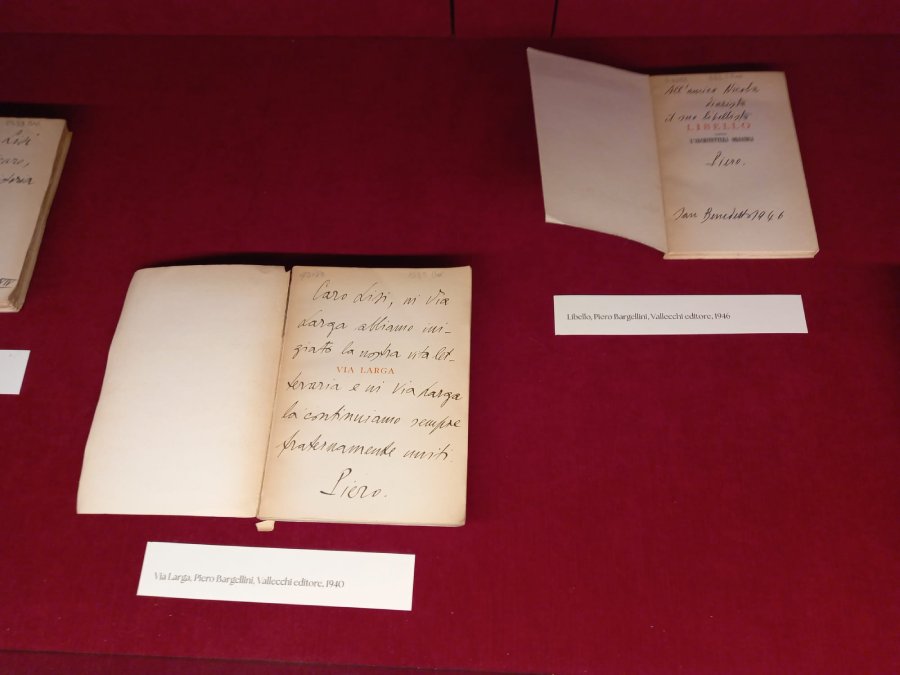 Lisi
All'amico Nicola
il suo libellista
LIBELLO
Piero.
San Benedetto 1946
Libello, Piero Bargellini, Vallecchi editore, 1946
Caro Lisi, in Via
Larga abbiamo ini-
ziato la nostra vita let-
VIA LARGA
teraria e in Via Larga
la continuiamo sempre
fraternamente uniti.
Piero.
Via Larga, Piero Bargellini, Vallecchi editore, 1940